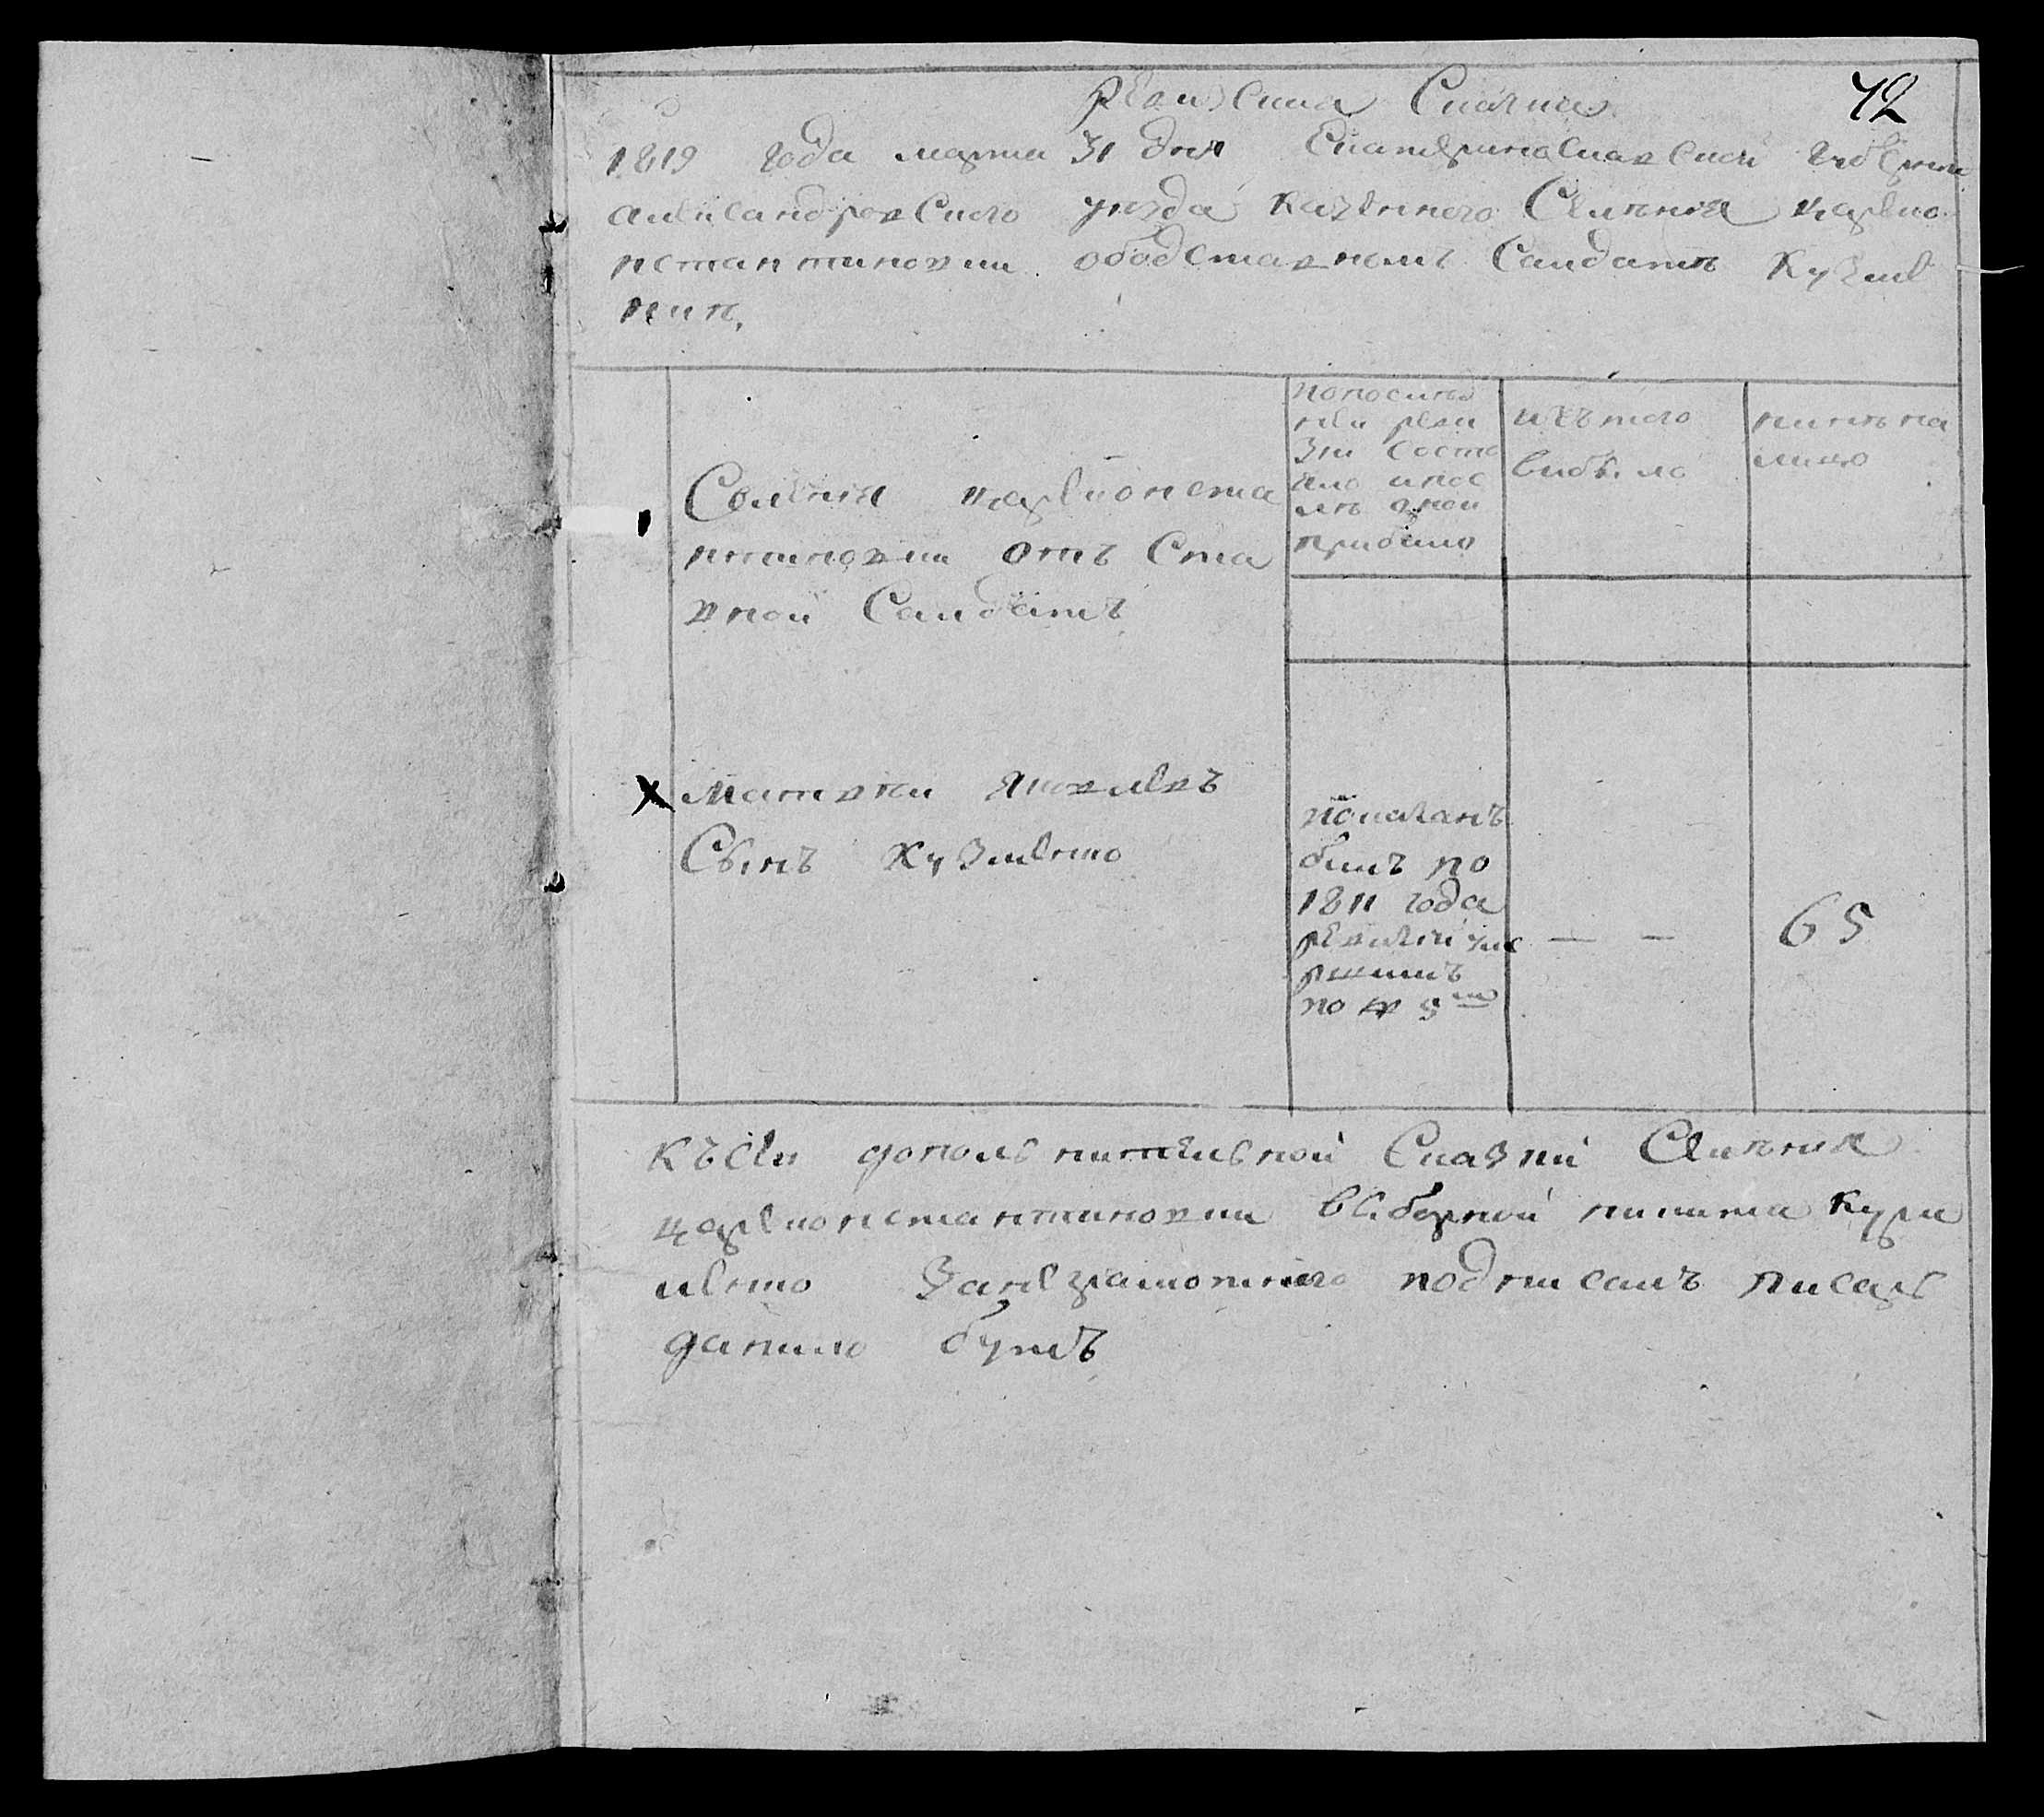 Ревизская Сказка
42
1819 года марта 31 дня Екатеринославской губерни
александровского уезда казенного Селения царево
нстантиновки ободставномъ Салдатъ Кузме
нки,
Селения царевконста
нтиновки отъ Ста
вной Салдатъ
попосилд
ней реви
зии состо
яло ипос
лъ оной
прибило
изътого
вибыло
нинъ на
лицо
X Матвеи Яковлевъ
Сынъ Кузменко
показанъ
билъ по
1811 года
ревизии
по № 5
— —
65
Къ сей дополнительной Сказки Селения
царевконстантиновки виборной никита Кузм
менко Занеграмотнего подписалъ писарь
данило бутъ